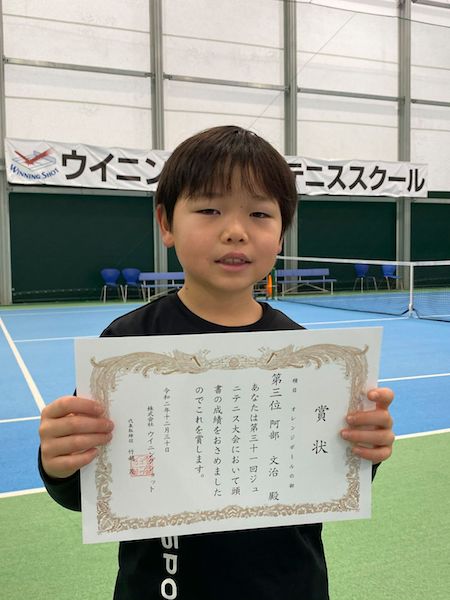 WINNING SHOT
ウイニン
テニススクール
賞状
種目 オレンジボールの部
第三位 阿部 文治 殿
あなたは第三十一回ジュ
ニテニス大会において頭
書の成績をおさめました
のでこれを賞します。
令和二年十二月三十日
株式会社 ウイニングショット
代表取締役
SPO